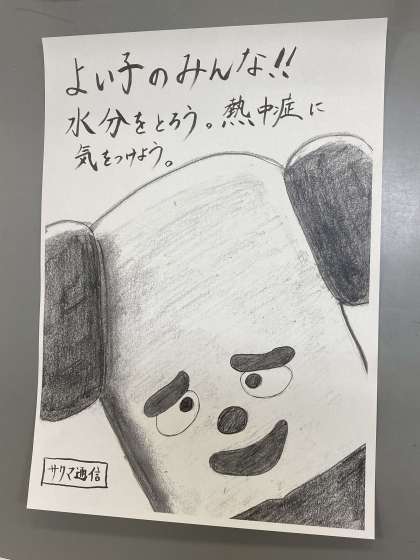 よい子のみんな!!
水分をとろう。熱中症に
気をつけよう。
サクマ通信